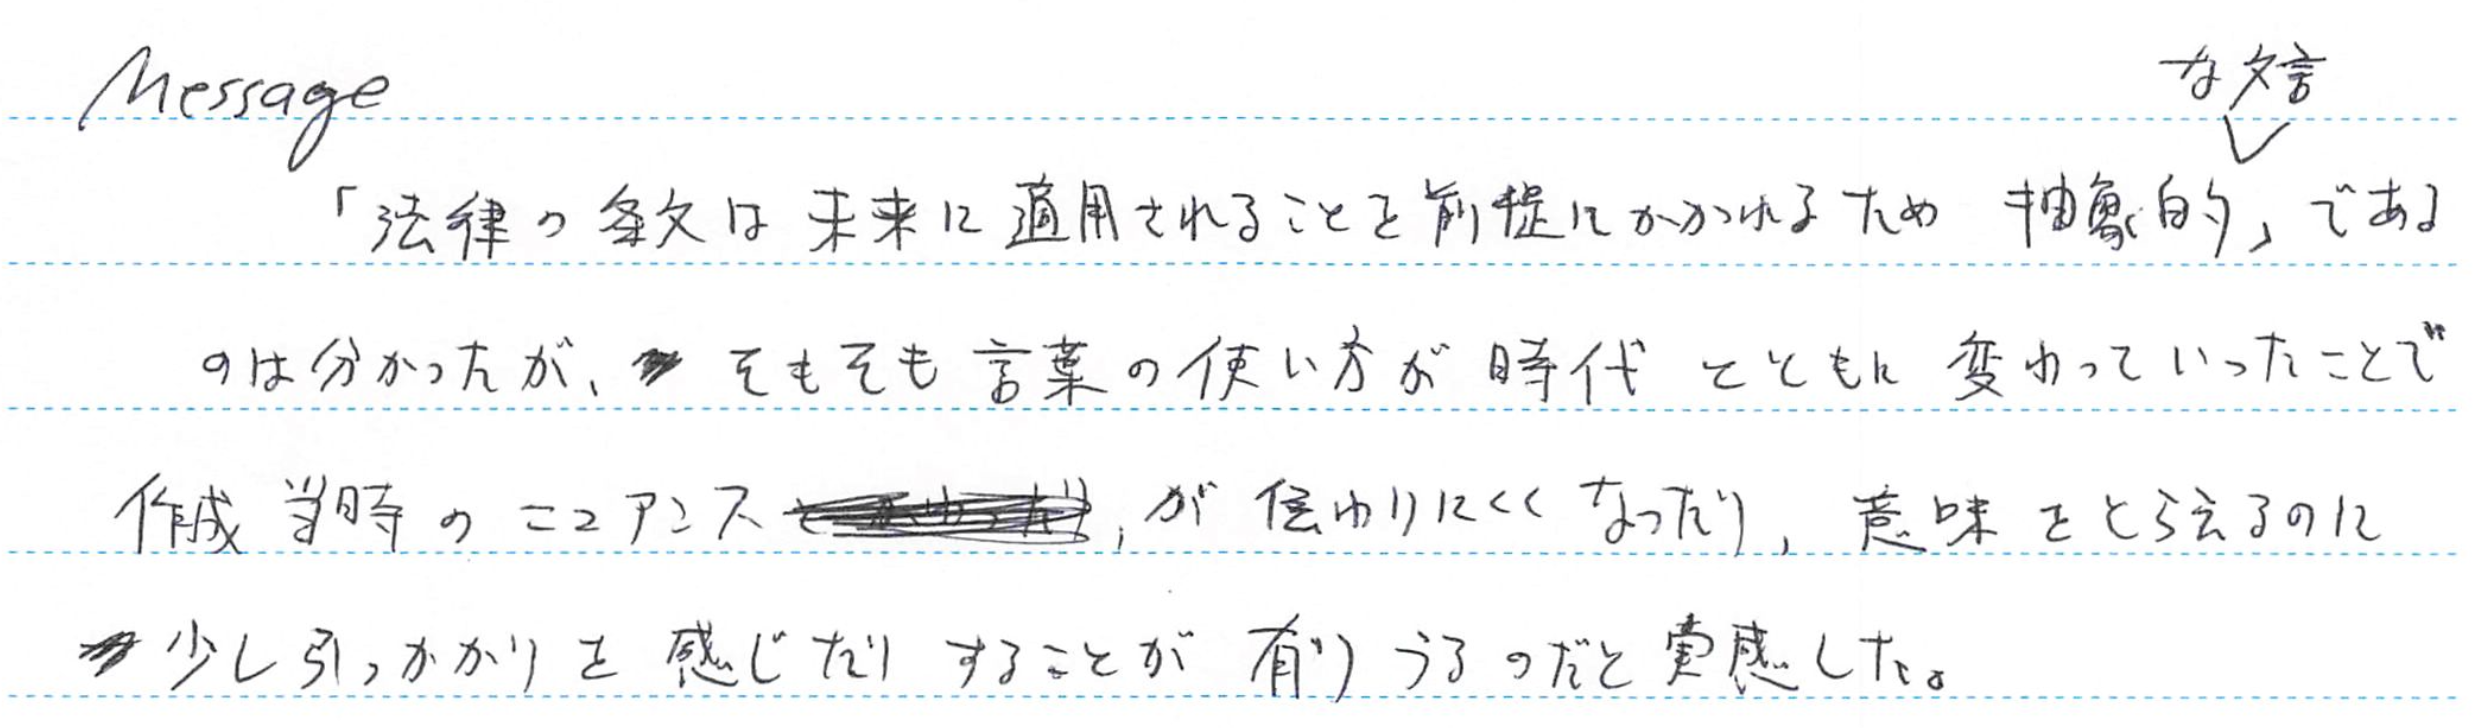 Message
「法律の条文は未来に適用されることを前提にかかれるため 抽象的な文言」である
のは分かったが、そもそも言葉の使い方が時代とともに変わっていったことで
作成当時のニュアンスが伝わりにくくなったり、意味をとらえるのに
少し引っかかりを感じたりすることが有りうるのだと実感した。